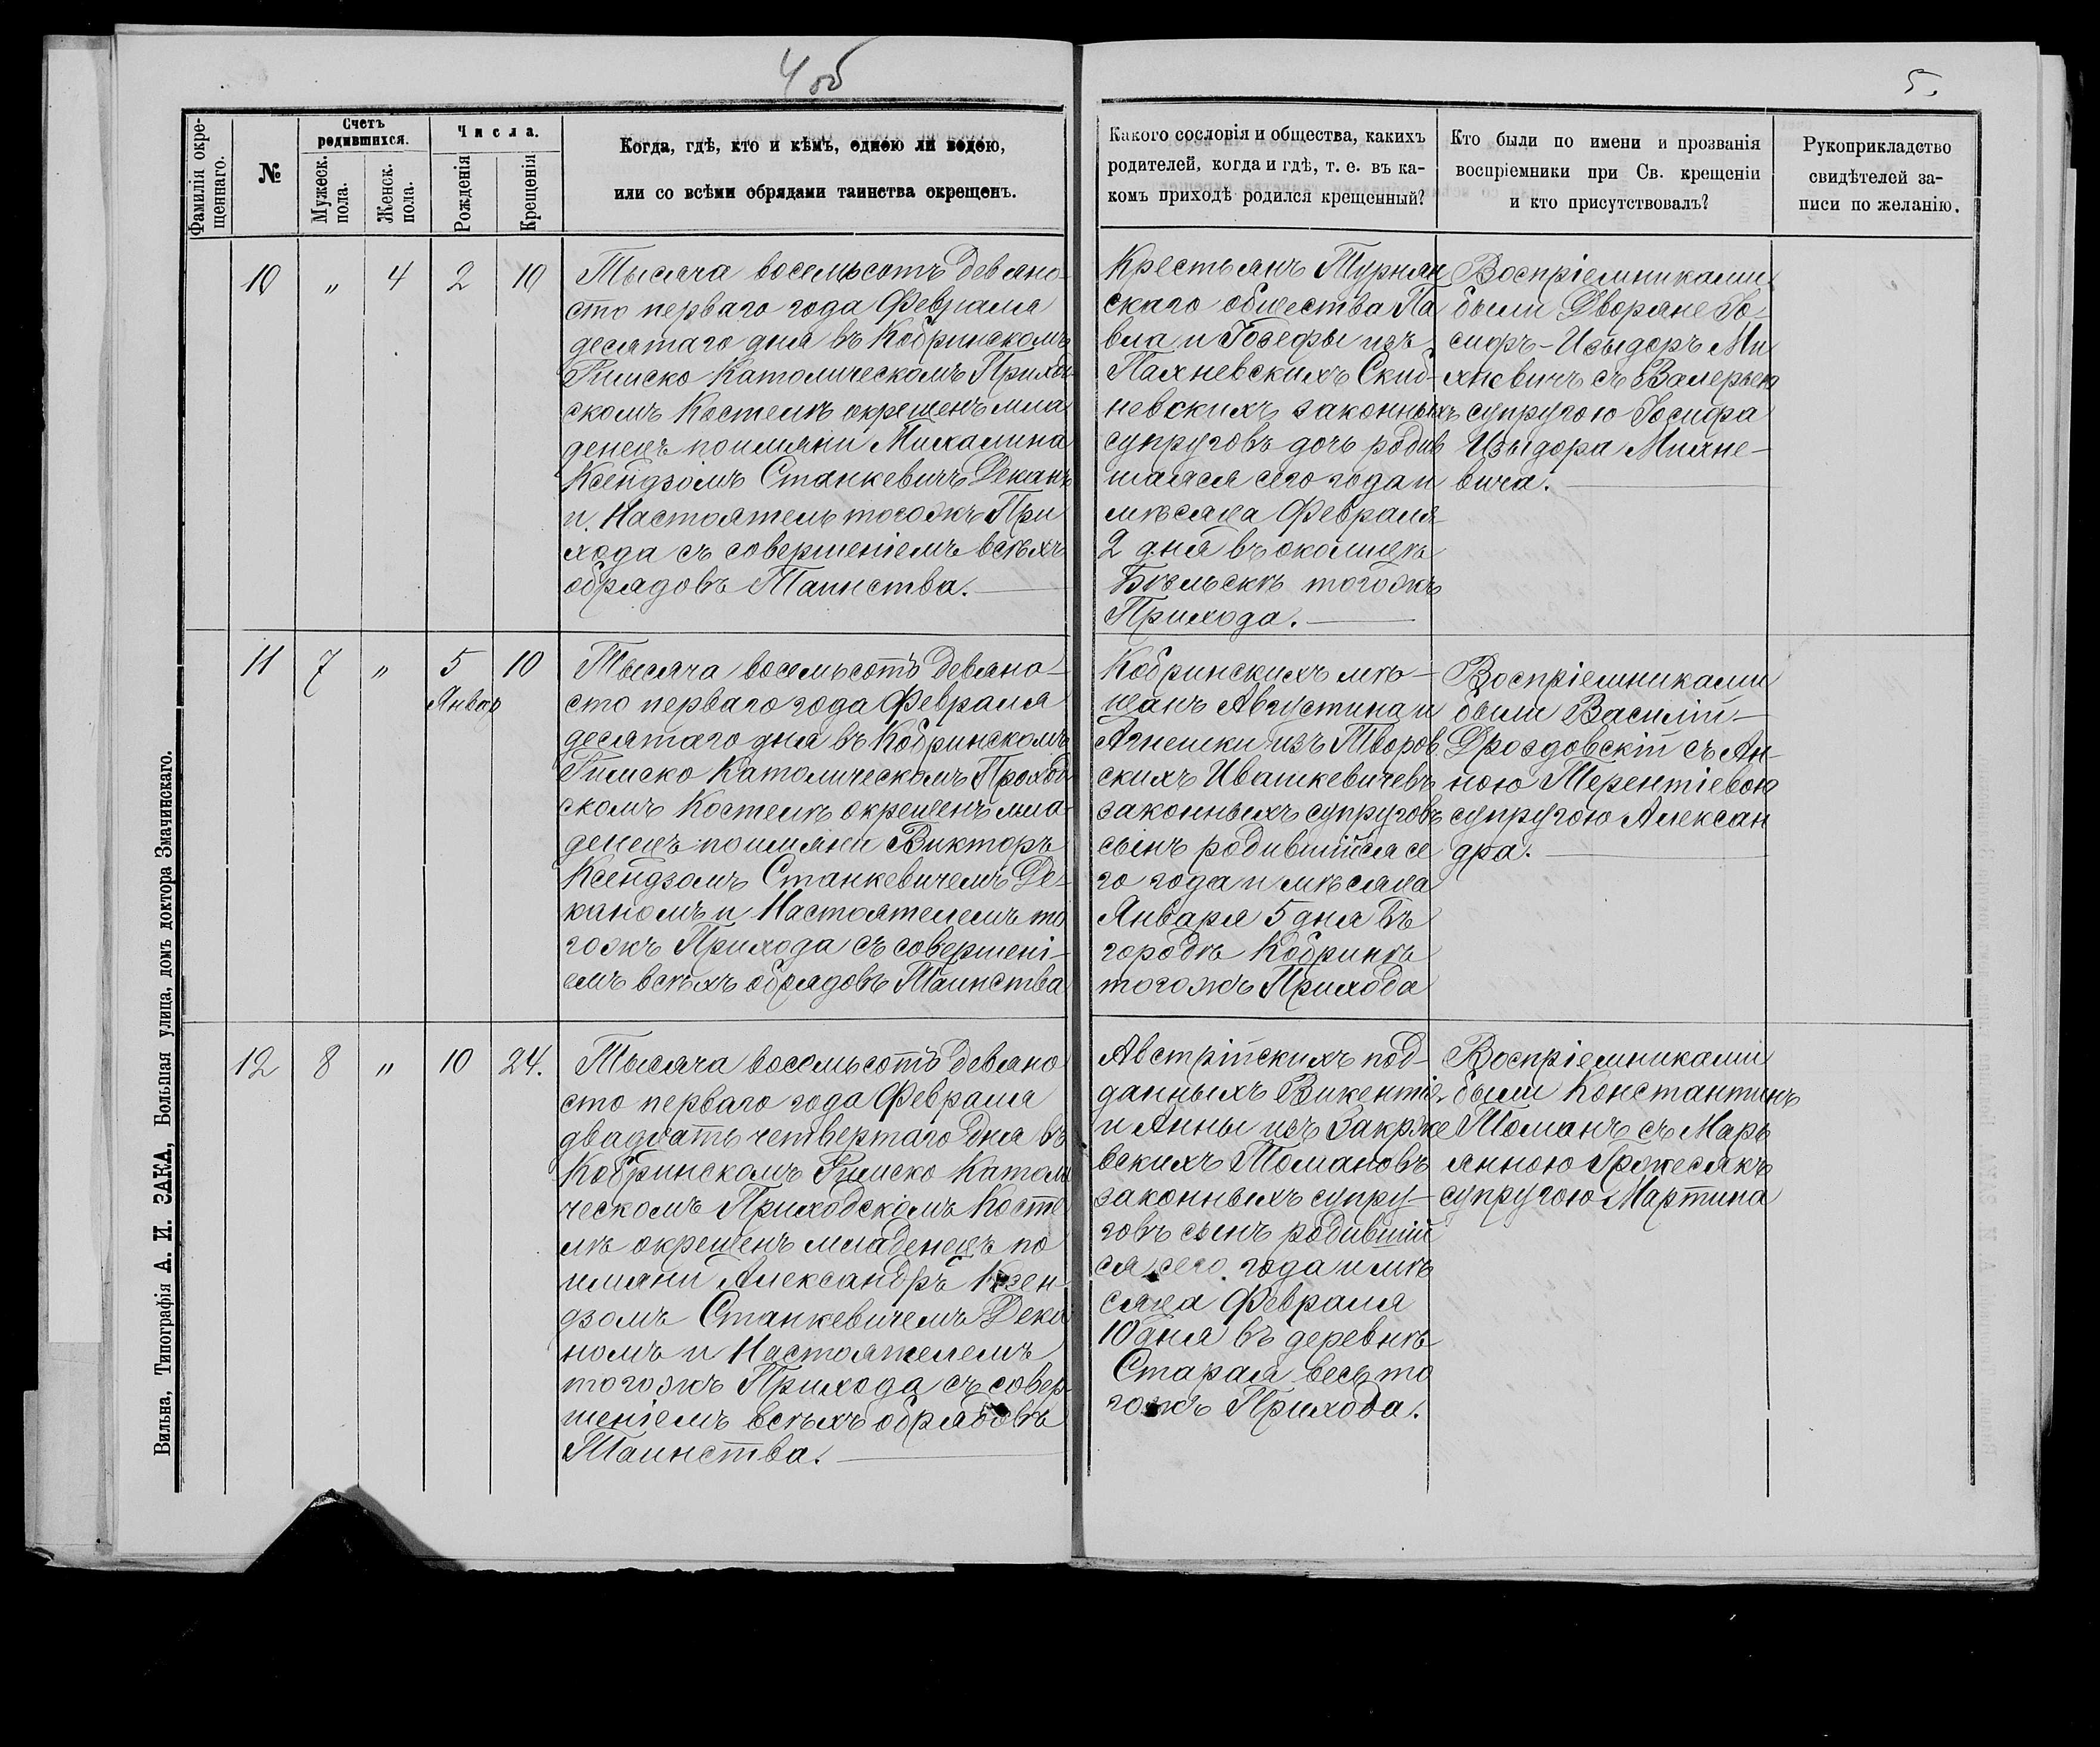 4 об
5.
Фамилія окре-
щеннаго.
№
Счетъ
родившихся.
Мужеск.
пола.
Женск.
пола.
Числа.
Рожденія
Крещенія
Когда, гдѣ, кто и кѣмъ, одною ли водою,
или со всѣми обрядами таинства окрещенъ.
Какого сословія и общества, какихъ
родителей, когда и гдѣ, т. е. въ ка-
комъ приходѣ родился крещенный?
Кто были по имени и прозванія
воспріемники при Св. крещеніи
и кто присутствовалъ?
Рукоприкладство
свидѣтелей за-
писи по желанію.
10 " 4 2 10
Тысяча восемьсотъ девяно-
сто перваго года Февраля
десятаго дня въ Кобринскомъ
Римско Католическомъ Приход
скомъ Костелѣ окрещенъ мла
денецъ поимяни Михалина
Ксендзомъ Станкевичъ Деканъ
и Настоятель тогожъ При
хода съ совершеніемъ всѣхъ
обрядовъ Таинства.
Крестьянъ Турнян
скаго общества Па
вла и Іозефы изъ
Палневскихъ Скиб-
невскихъ законныхъ
супруговъ дочь родив
шаяся сего года и
мѣсяца Февраля
2 дня въ околицѣ
Бѣльскѣ тогожъ
Прихода.
Воспріемниками
были Дворяне Іо-
сифъ-Изыдоръ Ми
хневичъ съ Валерьею
супругою Іосифа
Изыдора Михне-
вича.
11 7 " 5 10
Январ
Тысяча восемьсотъ девяно-
сто перваго года Февраля
десятаго дня въ Кобринскомъ
Римско Католическомъ Приход
скомъ Костелѣ окрещенъ мла-
денецъ поимяни Викторъ
Ксендзомъ Станкевичемъ Де-
каномъ и Настоятелемъ то
гожъ Прихода съ совершені-
емъ всѣхъ обрядовъ Таинства
Кобринскихъ мѣ-
щанъ Августина и
Агнешки изъ Творов
скихъ Ивашкевичевъ
законныхъ супруговъ
сынъ родившійся се
го года и мѣсяца
Января 5 дня въ
городѣ Кобринѣ
тогожъ Прихода
Воспріемниками
были Василій
Дроздовскій съ Ан-
ною Терентіевою
супругою Алексан
дра.
12 8 " 10 24.
Тысяча восемьсотъ девяно
сто перваго года Февраля
двадцать четвертаго дня въ
Кобринскомъ Римско Католи
ческомъ Приходскомъ Косте
лѣ окрещенъ младенецъ по
имяни Александръ Ксен-
дзомъ Станкевичемъ Дека
номъ и Настоятелемъ
тогожъ Прихода съ совер-
шеніемъ всѣхъ обрядовъ
Таинства.
Австрійскихъ под-
данныхъ Викентія
и Анны изъ Закрже
вскихъ Томановъ
законныхъ супру-
говъ сынъ родившій
ся сего года и мѣ
сяца Февраля
10 дня въ деревнѣ
Старая весь то
гожъ Прихода.
Воспріемниками
были Константинъ
Томанъ съ Марь
янною Гржесякъ
супругою Мартина
Вильна, Типографія А. И. ЗАКА, Большая улица, домъ доктора Змачинскаго.